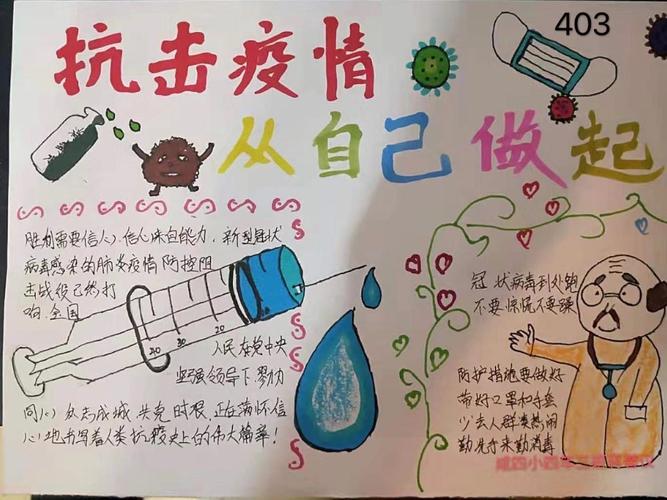 403
抗击疫情
从自己做起
胜利需要信心,信心来自能力,新型冠状
病毒感染的肺炎疫情防控阻
击战役已然打
响.全国
30 20
人民在党中央
坚强领导下.勠力
同心 众志成城 共克时艰,正在满怀信
心地书写着人类抗疫史上的伟大篇章!
冠状病毒到处跑
不要惊慌不要躁
防护措施要做好
带好口罩和手套
少去人群凑热闹
勤洗手来勤消毒
咸四小四